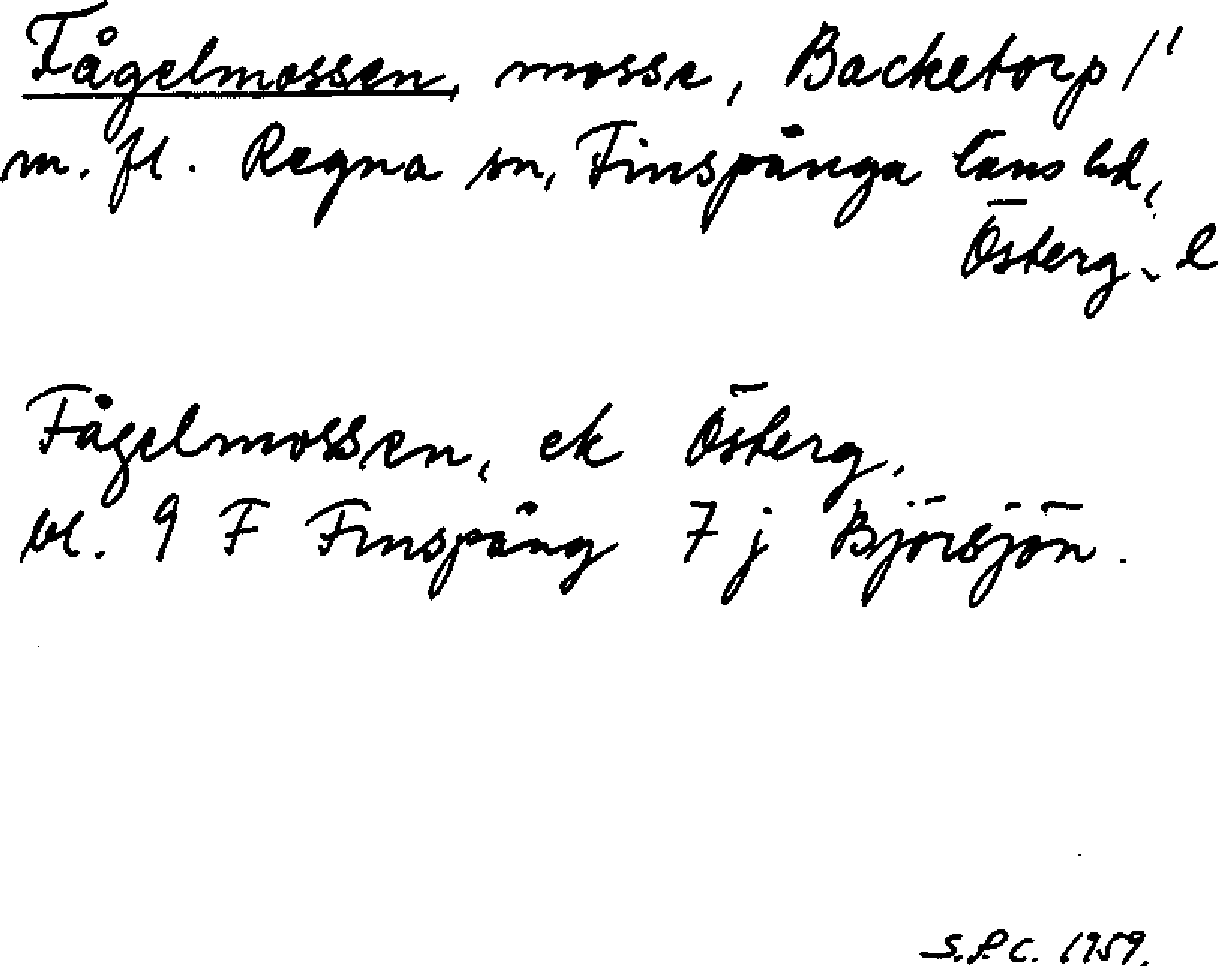 Fågelmossen, mosse, Backetorp 1¹
m. fl. Regna sn, Finspånga läns hd,
Österg. l
Fågelmossen, ek Österg.
bl. 9 F Finspång 7 j Björsjön.
S.P.C. 1959.